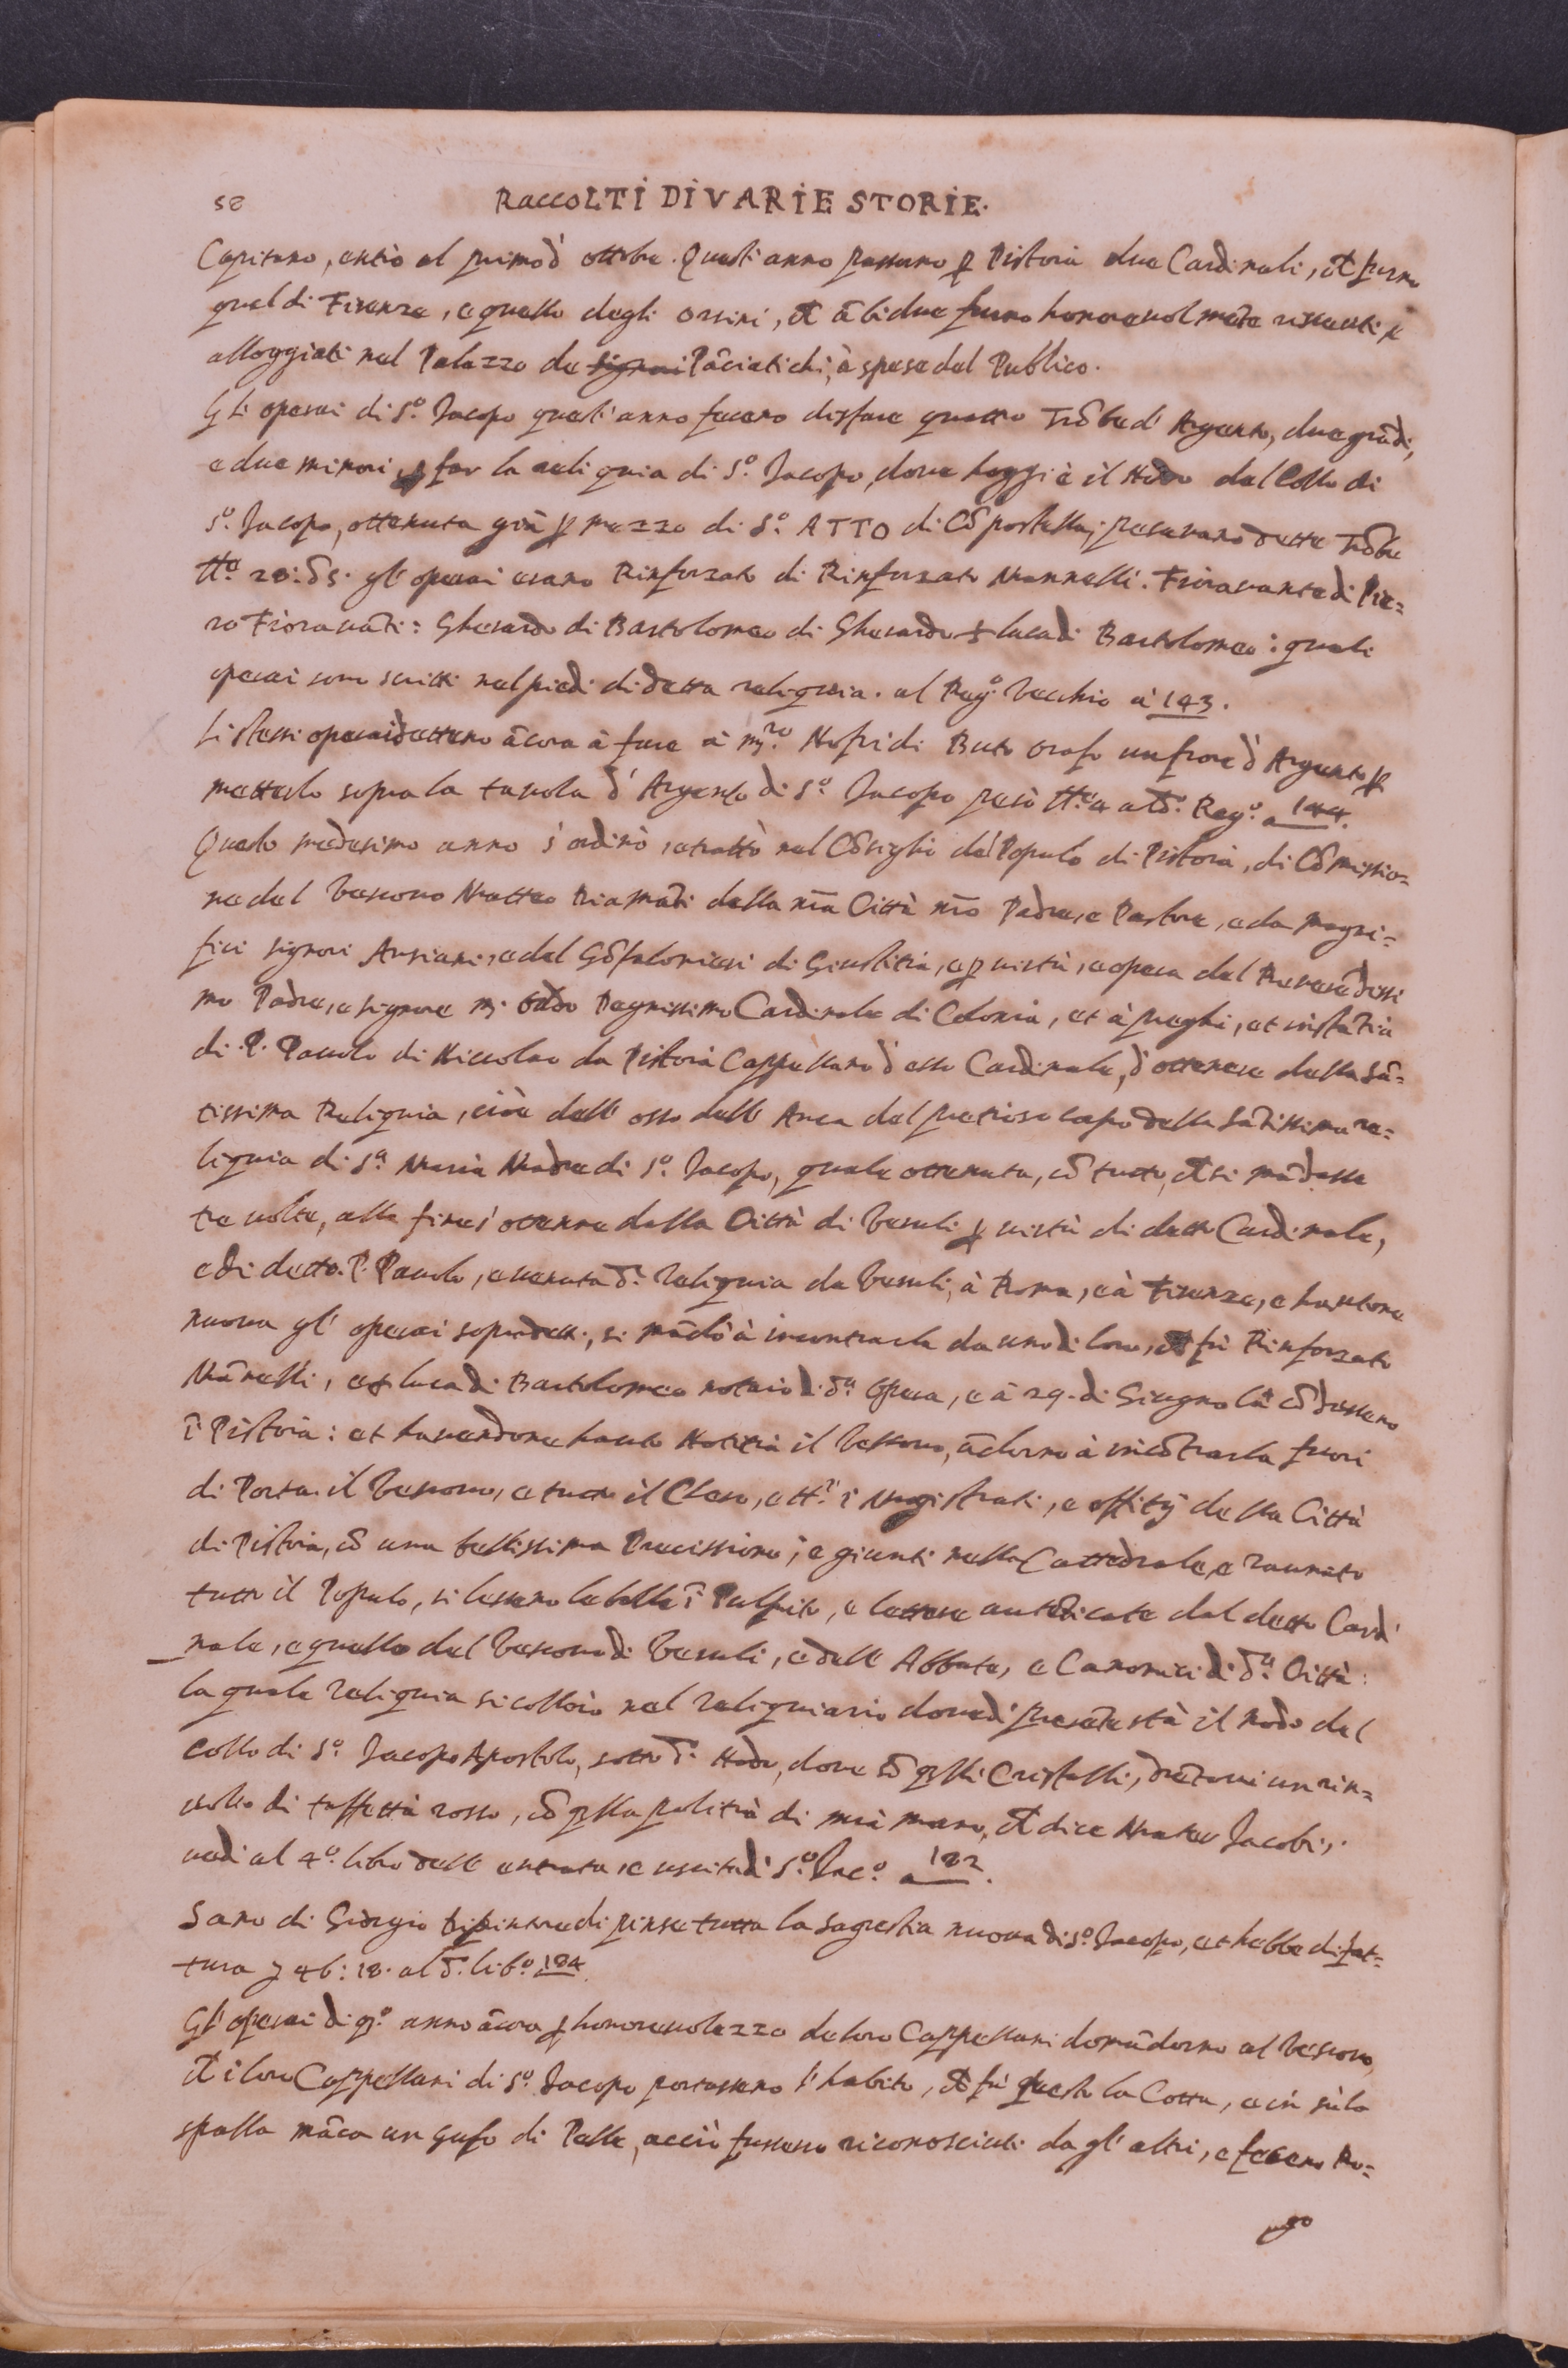 58
RACCOLTI DI VARIE STORIE.
Capitano, entrò al primo d' ottobre. Questi anno passano ꝑ Pistoia due Cardinali, ch̃ furno
quel di Firenze, e quello degli Orsini, et ãbidue furno honorevolmẽte riceuuti e
alloggiati nel Palazzo de signori Pãciatichi, à spese del Publico.
Gli operai di S.º Jacopo quest' anno fecero disfare quattro Trõbe d' Argento, due grãdi,
e due minori, ꝑ far la reliquia di S.º Jacopo, dove hoggi è il Nodo del Collo di
S.º Jacopo, ottenuta già ꝑ mezzo di S.º ATTO di Cõpostella; pesavano dette Trõbe
gl' operai erano Rinforzato di Rinforzato Mannelli. Fioravante di Pie=
ro Fioravãti: Gherardo di Bartolomeo di Gherardo & luca di Bartolomeo: quali
operai sono scritti nel piedi di detta reliquia. al Reg.º Vecchio à 143.
Li stessi operai dettero ãcora à fare à m.ro Nofri di Buto orafo un fiore d' Argento ꝑ
metterlo sopra la tavola d' Argento di S.º Jacopo pesò Reg.º a 144.
Questo medesimo anno s' ordinò, e trattò nel Cõsiglio del Populo di Pistoia, di Cõmissio=
ne del Vescovo Matteo Diamãti della nr̃a Città nr̃o Padre, e Pastore, e da Magni=
fici signori Ansiani, e del Gõfalonieri di Giustitia, e ꝑ virtù, e opera del Reverẽdissi
mo Padre, e signore m. Oddo Degnissimo Cardinale di Colonia, et à preghi, et instãtia
di P. Pauolo di Niccolao da Pistoia Cappellano d' esso Cardinale, d' ottenere della Sã=
tissima Reliquia, cioè dell' osso dell' Anca del pretioso corpo della Sãtissima re=
liquia di S.ª Maria Madre di S.º Jacopo, quale ottenuta, cõ tutto, ch̃ si mãdasse
tre volte, alla fine s' ottenne dalla Città di Veruli ꝑ virtù di detto Cardinale,
e di detto. P. Pauolo, e venuta d.ª Reliquia da Veruli, à Roma, e à Firenze, e hautone
nuova gl' operai sopradetti, si mãdò à incontrarla da uno di loro, ch̃ fù Rinforzato
Mãnelli, e & luca di Bartolomeo notaio di d.ª Opera, e à 29. di Giugno la cõdussero
ĩ Pistoia: et havendone hauto Notitia il Vescovo, ãdorno à incõtrarla fuori
di Porta. il Vescovo, e tutto il Clero, e tt.i i Magistrati, e offitij della Città
di Pistoia, cõ una bellissima Processione; e giunti nella Cattedrale, e raunato
tutto il Populo, si lessero le bolle ĩ Pulpito, e lettere autẽticate dal detto Cardi
nale, e quelle del Vescovo di Veruli, e dell' Abbate, e Canonici di d.ª Città:
la quale reliquia si collocò nel reliquiario dove di presẽte stà il nodo del
Collo di S.º Jacopo Apostolo, sotto d.º Nodo, dove sõ q̃lli Cristalli, drẽtovi un rin=
volto di taffettà rosso, cõ q̃lla politia di mia mano, ch̃ dice Mater Jacobi,.
vedi al 4.º libro dell' entrata, e uscita di S.º Jac.º a 122.
Sano di Giorgio dipintore dipinse tutta la Sagrestia nuova di S.º Jacopo, et hebbe di fat=
tura ƒ 46: 18. al d.º lib.º 124.
Gl' operai di q.º anno ãcora ꝑ honorevolezza de loro Cappellani domãdorno al Vescovo,
ch̃ i loro Cappellani di S.º Jacopo portassero l' habito, ch̃ fù questo la Cotta, e in sù la
spalla mãca un Gufo di Pelle, acciò fussero riconosciuti dagl' altri, e fecero Ro=
go